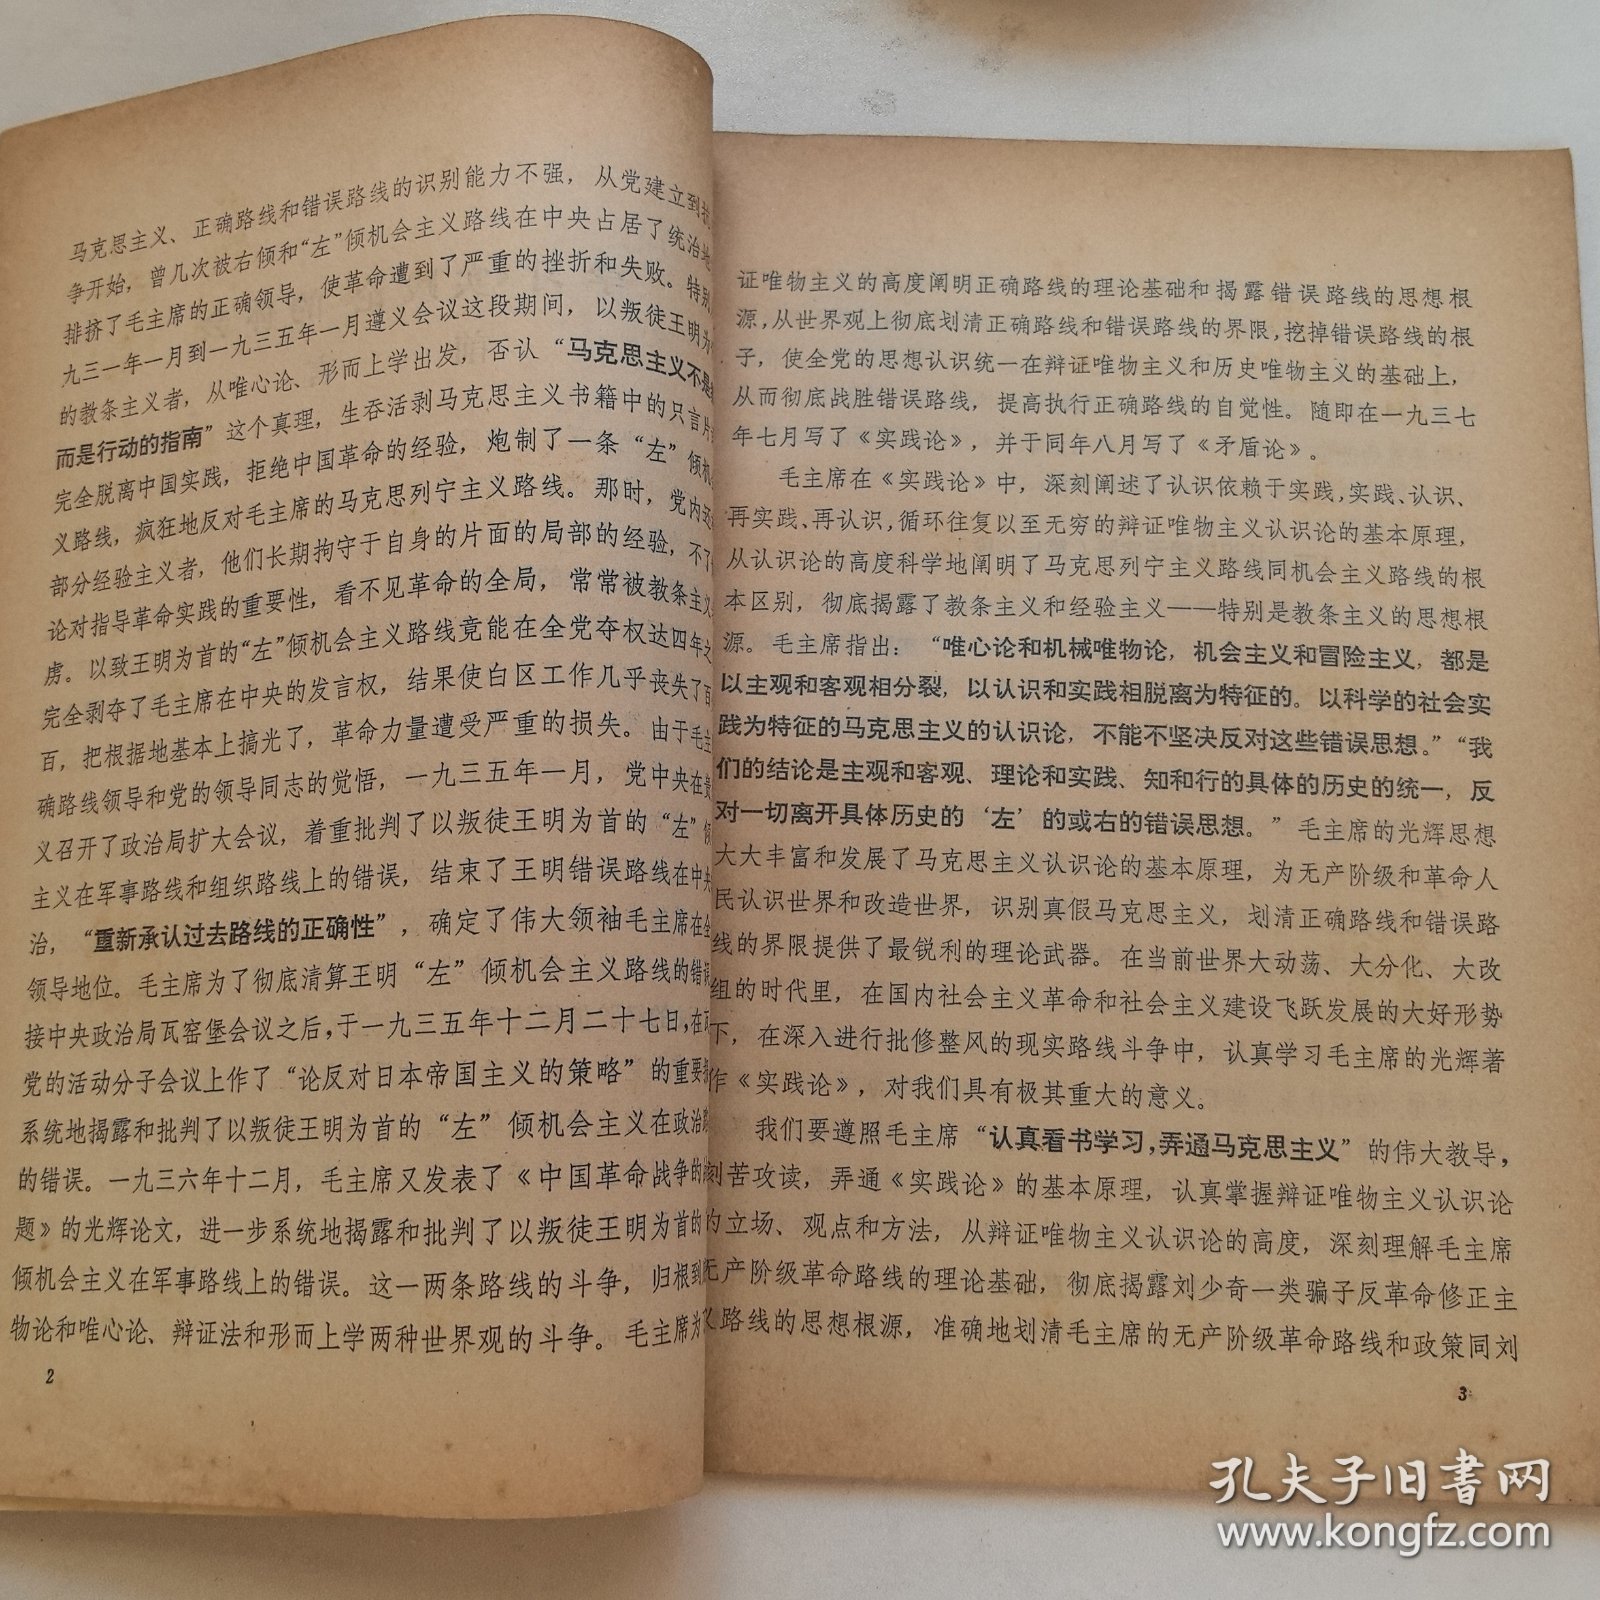 马克思主义、正确路线和错误路线的识别能力不强，从党建立到抗
争开始，曾几次被右倾和“左”倾机会主义路线在中央占居了统治地
排挤了毛主席的正确领导，使革命遭到了严重的挫折和失败。特别
九三一年一月到一九三五年一月遵义会议这段期间，以叛徒王明为
的教条主义者，从唯心论、形而上学出发，否认“马克思主义不是
而是行动的指南”这个真理，生吞活剥马克思主义书籍中的只言片
完全脱离中国实践，拒绝中国革命的经验，炮制了一条“左”倾机
义路线，疯狂地反对毛主席的马克思列宁主义路线。那时，党内还
部分经验主义者，他们长期拘守于自身的片面的局部的经验，不了
论对指导革命实践的重要性，看不见革命的全局，常常被教条主义
虏。以致王明为首的“左”倾机会主义路线竟能在全党夺权达四年之
完全剥夺了毛主席在中央的发言权，结果使白区工作几乎丧失了百
百，把根据地基本上搞光了，革命力量遭受严重的损失。由于毛主
确路线领导和党的领导同志的觉悟，一九三五年一月，党中央在贵
义召开了政治局扩大会议，着重批判了以叛徒王明为首的“左”倾
主义在军事路线和组织路线上的错误，结束了王明错误路线在中央
治，“重新承认过去路线的正确性”，确定了伟大领袖毛主席在全
领导地位。毛主席为了彻底清算王明“左”倾机会主义路线的错误
接中央政治局瓦窑堡会议之后，于一九三五年十二月二十七日，在瓦
党的活动分子会议上作了“论反对日本帝国主义的策略”的重要
系统地揭露和批判了以叛徒王明为首的“左”倾机会主义在政治路
的错误。一九三六年十二月，毛主席又发表了《中国革命战争的
题》的光辉论文，进一步系统地揭露和批判了以叛徒王明为首的
倾机会主义在军事路线上的错误。这一两条路线的斗争，归根到
物论和唯心论、辩证法和形而上学两种世界观的斗争。毛主席为
2
证唯物主义的高度阐明正确路线的理论基础和揭露错误路线的思想根
源，从世界观上彻底划清正确路线和错误路线的界限，挖掉错误路线的根
子，使全党的思想认识统一在辩证唯物主义和历史唯物主义的基础上，
从而彻底战胜错误路线，提高执行正确路线的自觉性。随即在一九三七
年七月写了《实践论》，并于同年八月写了《矛盾论》。
毛主席在《实践论》中，深刻阐述了认识依赖于实践，实践、认识、
再实践、再认识，循环往复以至无穷的辩证唯物主义认识论的基本原理，
从认识论的高度科学地阐明了马克思列宁主义路线同机会主义路线的根
本区别，彻底揭露了教条主义和经验主义——特别是教条主义的思想根
源。毛主席指出：“唯心论和机械唯物论，机会主义和冒险主义，都是
以主观和客观相分裂，以认识和实践相脱离为特征的。以科学的社会实
践为特征的马克思主义的认识论，不能不坚决反对这些错误思想。”“我
们的结论是主观和客观、理论和实践、知和行的具体的历史的统一，反
对一切离开具体历史的‘左’的或右的错误思想。”毛主席的光辉思想
大大丰富和发展了马克思主义认识论的基本原理，为无产阶级和革命人
民认识世界和改造世界，识别真假马克思主义，划清正确路线和错误路
线的界限提供了最锐利的理论武器。在当前世界大动荡、大分化、大改
组的时代里，在国内社会主义革命和社会主义建设飞跃发展的大好形势
下，在深入进行批修整风的现实路线斗争中，认真学习毛主席的光辉著
作《实践论》，对我们具有极其重大的意义。
我们要遵照毛主席“认真看书学习，弄通马克思主义”的伟大教导，
刻苦攻读，弄通《实践论》的基本原理，认真掌握辩证唯物主义认识论
的立场、观点和方法，从辩证唯物主义认识论的高度，深刻理解毛主席
无产阶级革命路线的理论基础，彻底揭露刘少奇一类骗子反革命修正主
义路线的思想根源，准确地划清毛主席的无产阶级革命路线和政策同刘
3
孔夫子旧书网
www.kongfz.com